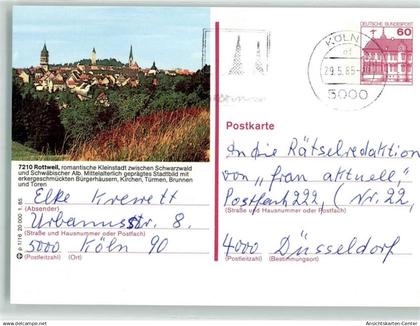 DEUTSCHE BUNDESPOST
60
KÖLN
29.5.85
5000
7210 Rottweil, romantische Kleinstadt zwischen Schwarzwald
und Schwäbischer Alb. Mittelalterlich geprägtes Stadtbild mit
erkergeschmückten Bürgerhäusern, Kirchen, Türmen, Brunnen
und Toren
Elke
(Absender)
Urbanusstr. 8.
(Straße und Hausnummer oder Postfach)
5000 Köln 90
(Postleitzahl) (Ort)
p 1/16 20 000 1. 85
Postkarte
An die Rätselredaktion
von „frau aktuell“
Postfach 222, (Nr. 22,
(Straße und Hausnummer oder Postfach)
4000 Düsseldorf
(Postleitzahl) (Bestimmungsort)
www.ansichtskarten-center.de
Ansichtskarten-Center